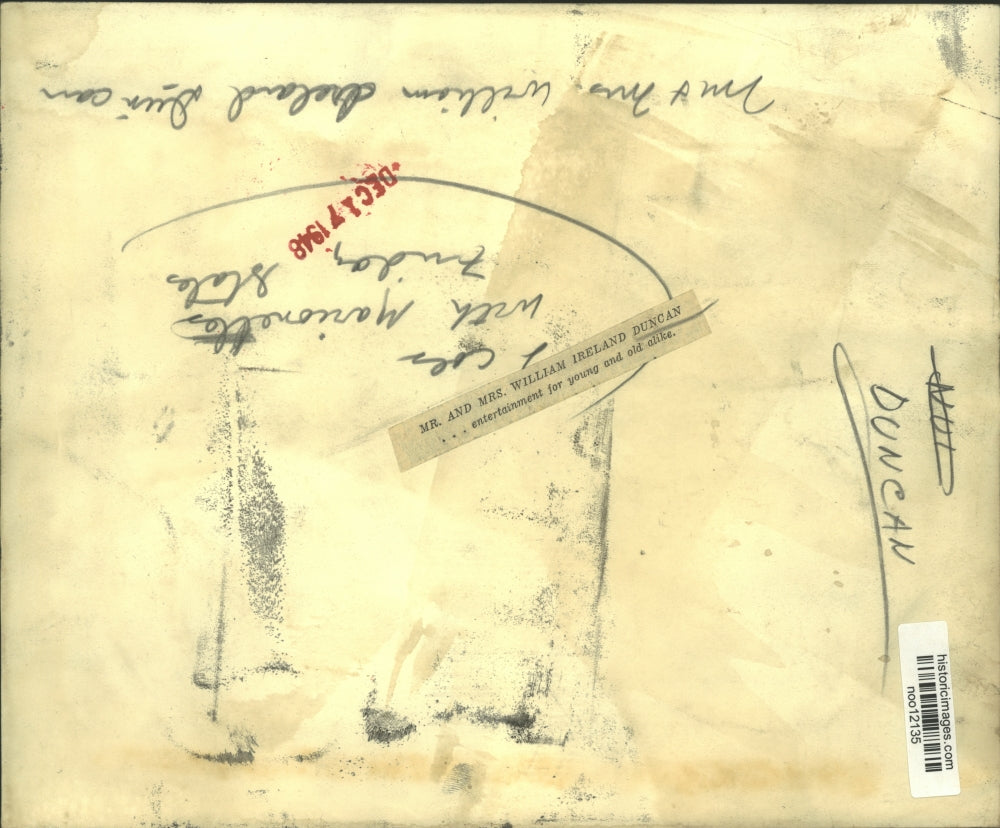 Mr & Mrs. William Ireland Duncan
DEC 17 1948
Friday State
with Marionettes
MR. AND MRS. WILLIAM IRELAND DUNCAN
. . . entertainment for young and old alike.
DUNCAN
historicimages.com
noo12135